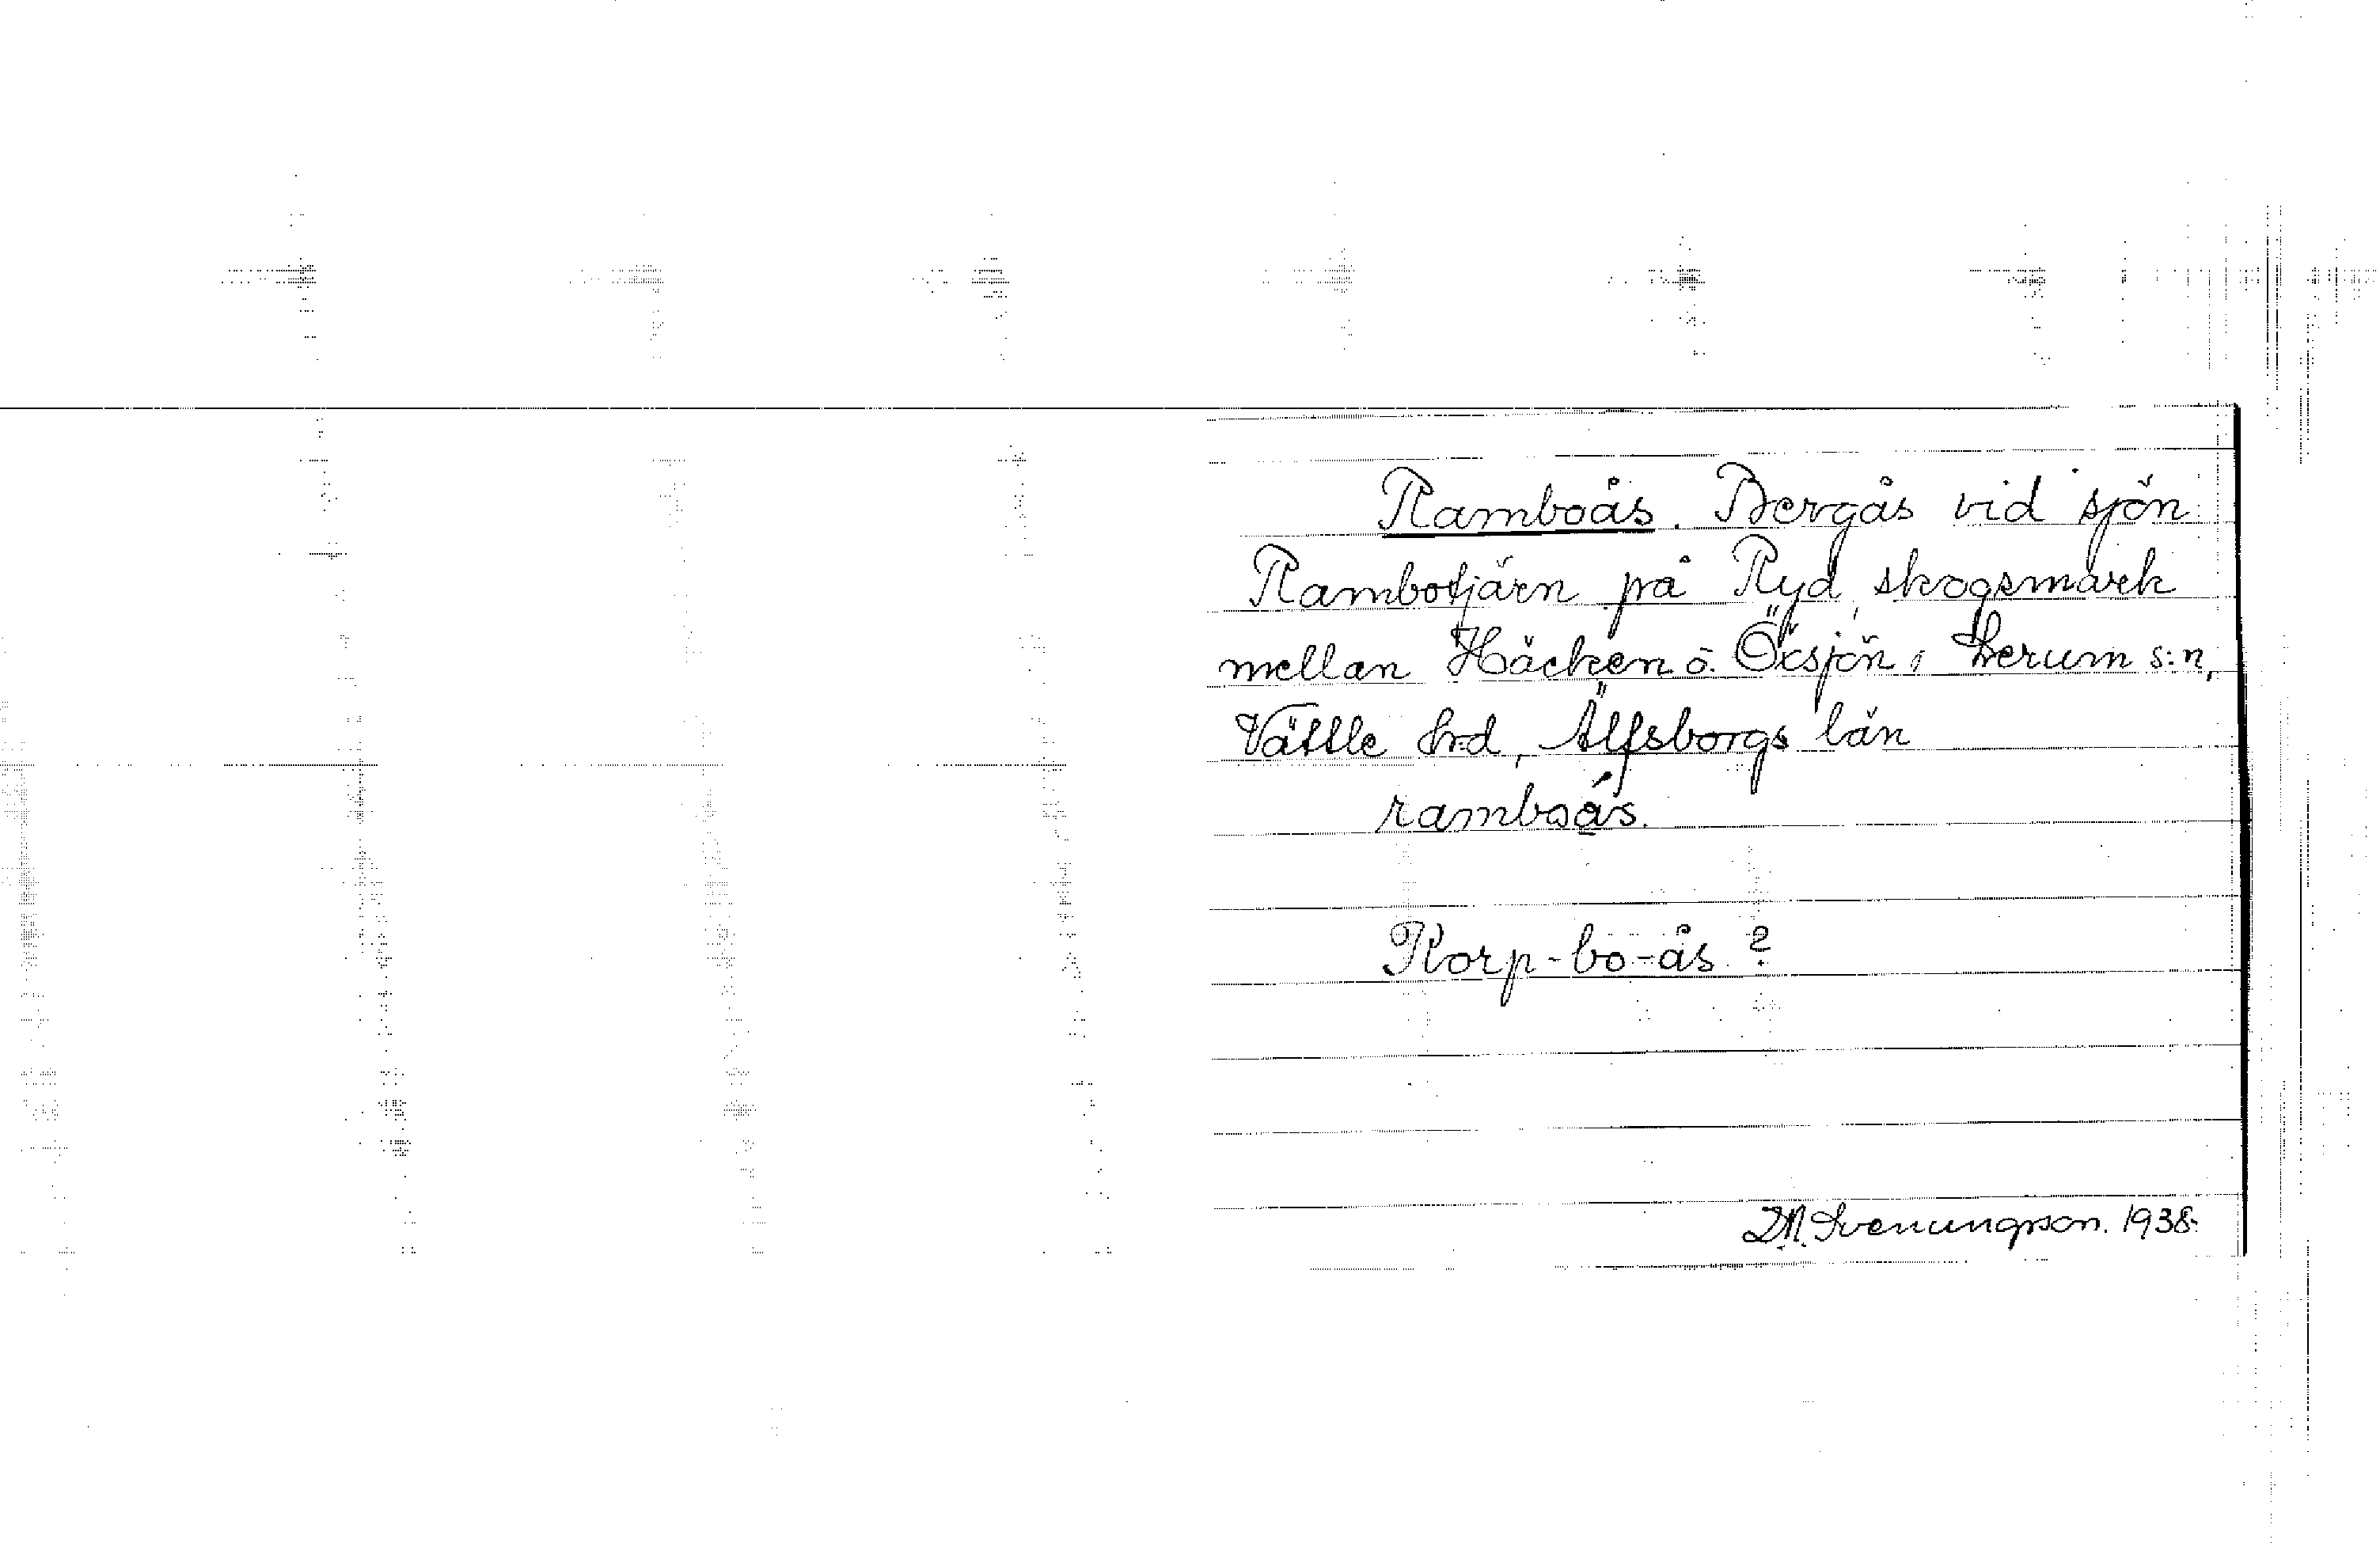 Ramboås. Bergås vid sjön
Rambotjärn på Ryd, skogsmark
mellan Häcken o. Öxsjön i Lerum s:n,
Vättle hrd, Älfsborgs län
ramboás.
Korp-bo-ås?
D.N. Svenungsson. 1938.